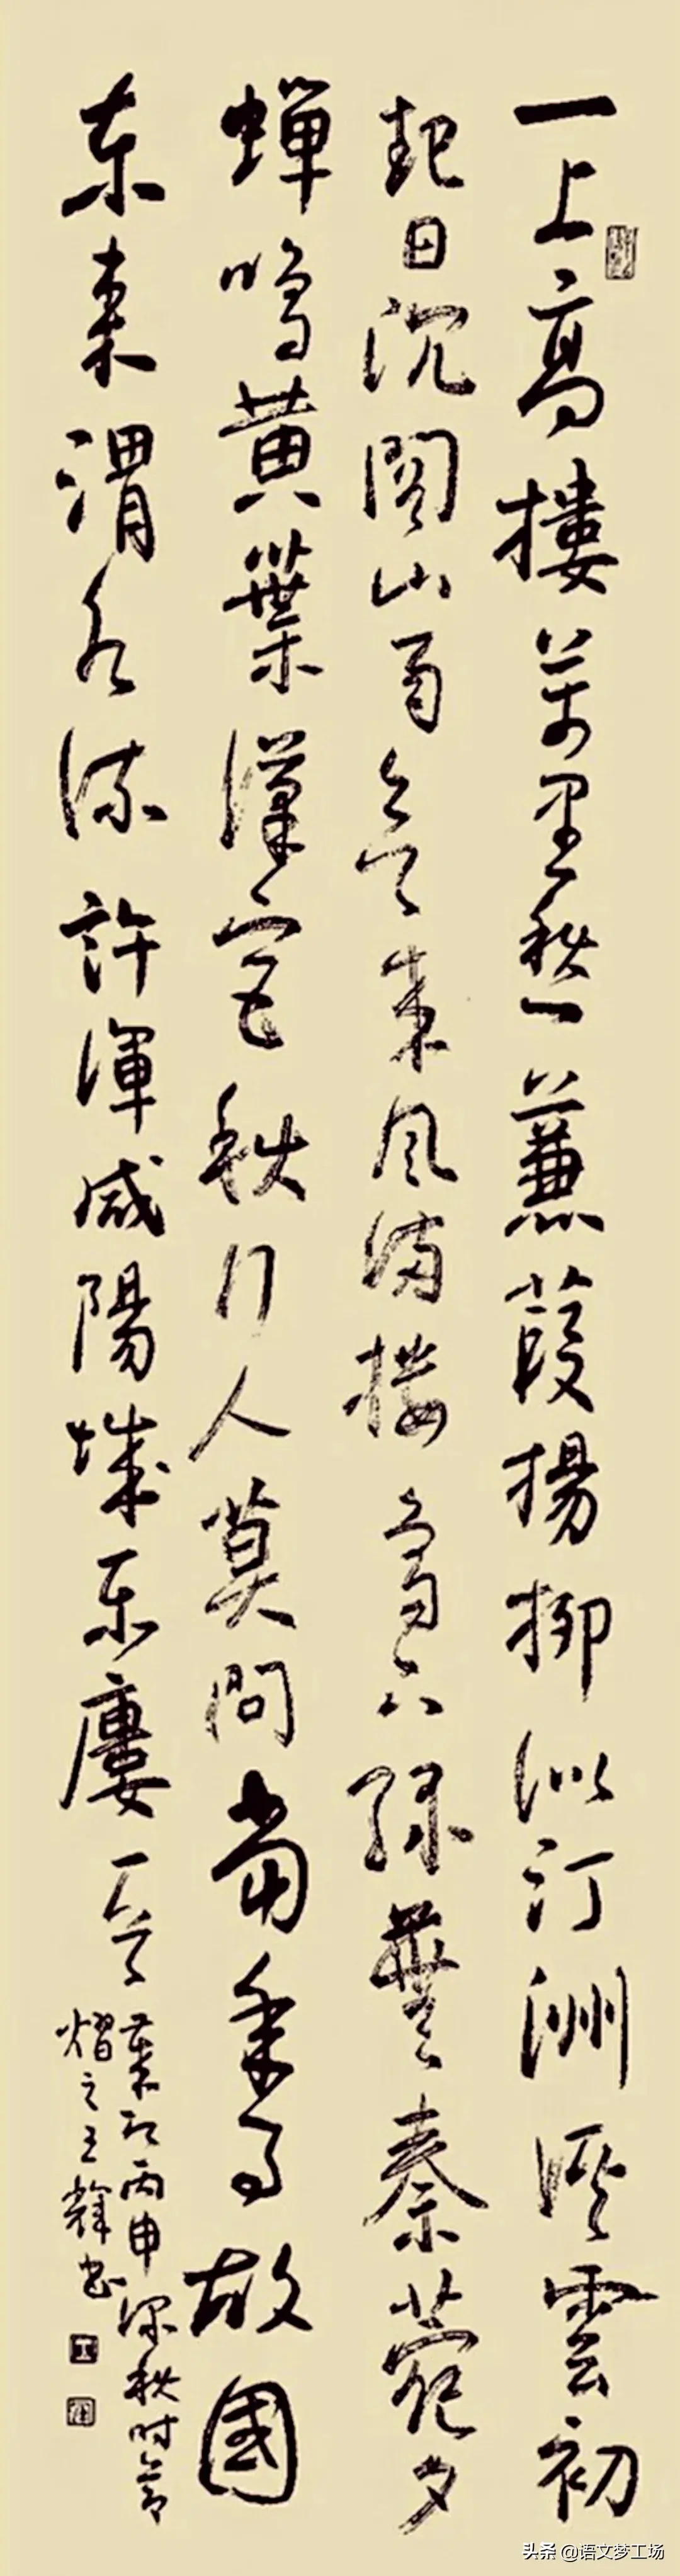 一上高樓萬里愁蒹葭楊柳似汀洲溪雲初
起日沉閣山雨欲來風滿樓鳥下綠蕪秦苑夕
蟬鳴黄葉漢宮秋行人莫問當年事故國
東來渭水流許渾咸陽城東樓一首
丙申深秋时節
熠之王輝书
头条 @语文梦工场